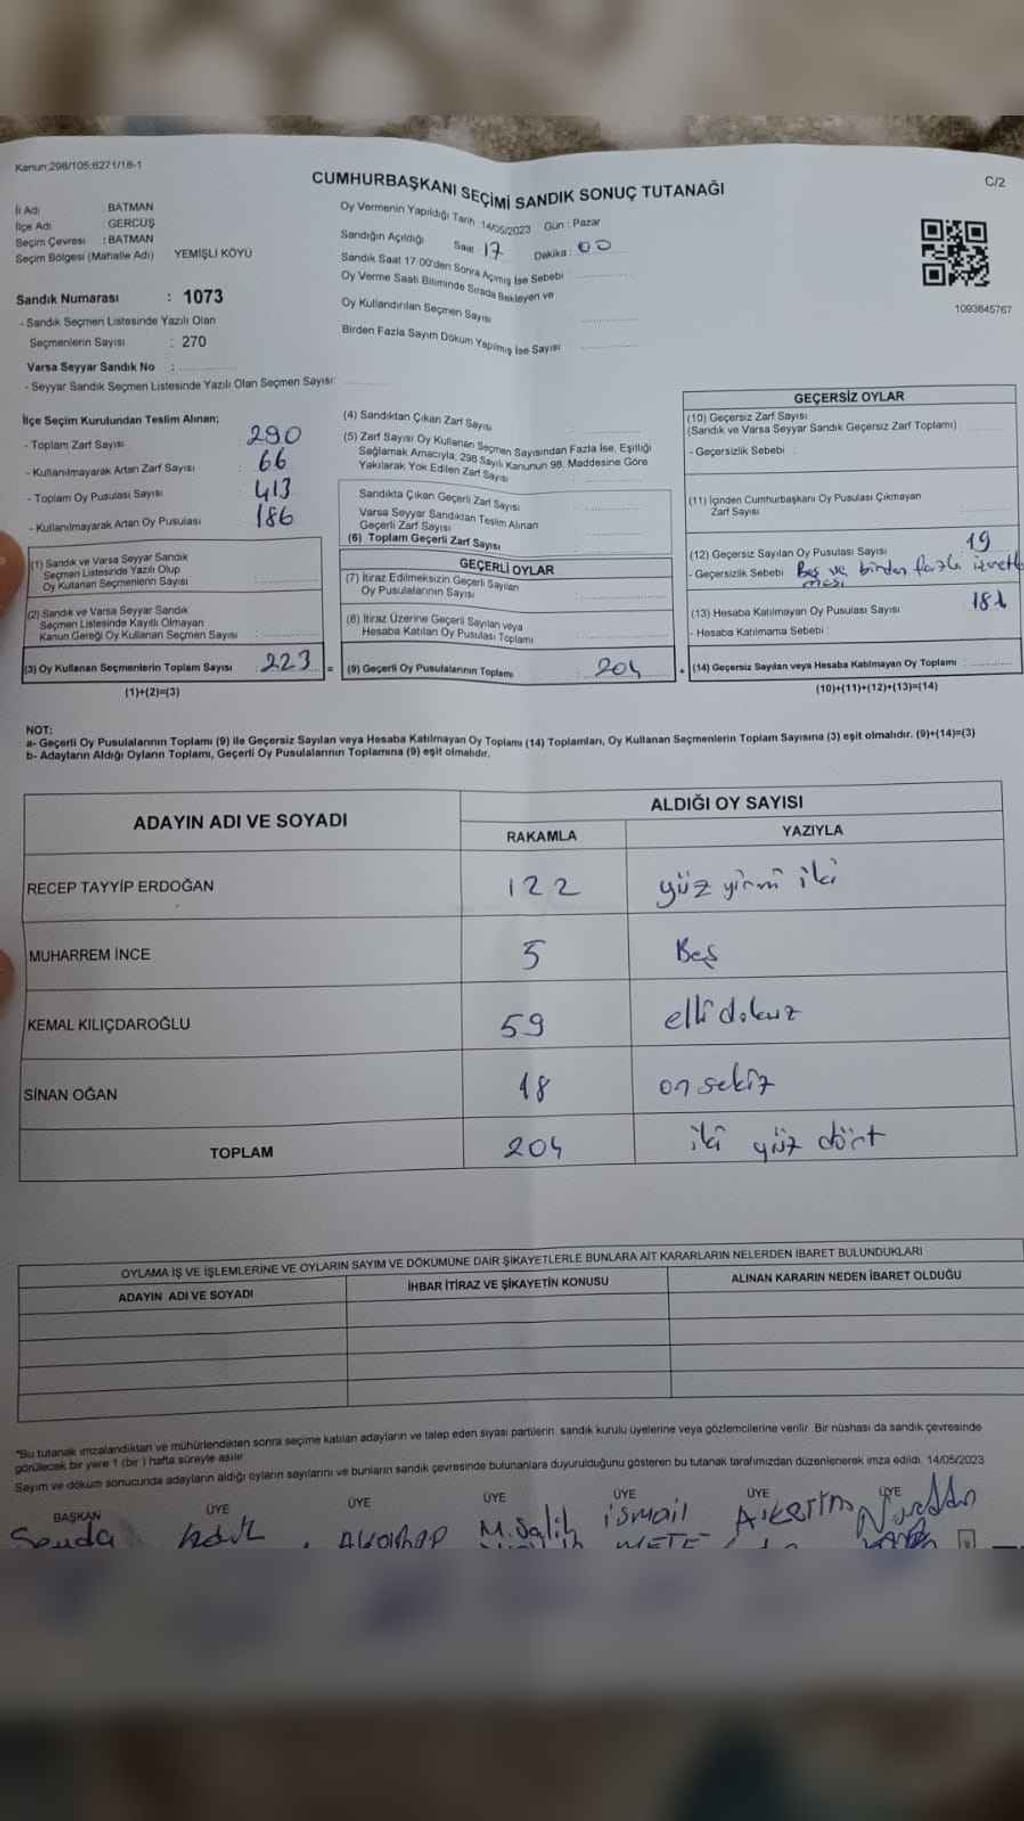 Kanun:298/105;6271/18-1
CUMHURBAŞKANI SEÇİMİ SANDIK SONUÇ TUTANAĞI
C/2
İl Adı : BATMAN
İlçe Adı : GERCÜŞ
Seçim Çevresi : BATMAN
Seçim Bölgesi (Mahalle Adı) YEMİŞLİ KÖYÜ
Oy Vermenin Yapıldığı Tarih :14/05/2023 Gün : Pazar
Sandığın Açıldığı Saat : 17 Dakika : 00
Sandık Saat 17:00'den Sonra Açmış İse Sebebi
Oy Verme Saati Bitiminde Sırada Bekleyen ve
Oy Kullandırılan Seçmen Sayısı
Birden Fazla Sayım Döküm Yapılmış İse Sayısı
1093645767
Sandık Numarası : 1073
- Sandık Seçmen Listesinde Yazılı Olan
Seçmenlerin Sayısı : 270
Varsa Seyyar Sandık No :
- Seyyar Sandık Seçmen Listesinde Yazılı Olan Seçmen Sayısı:
İlçe Seçim Kurulundan Teslim Alınan;
- Toplam Zarf Sayısı 290
- Kullanılmayarak Artan Zarf Sayısı : 66
- Toplam Oy Pusulası Sayısı 413
- Kullanılmayarak Artan Oy Pusulası 186
(1) Sandık ve Varsa Seyyar Sandık
Seçmen Listesinde Yazılı Olup
Oy Kullanan Seçmenlerin Sayısı
(2) Sandık ve Varsa Seyyar Sandık
Seçmen Listesinde Kayıtlı Olmayan
Kanun Gereği Oy Kullanan Seçmen Sayısı
(3) Oy Kullanan Seçmenlerin Toplam Sayısı 223 =
(1)+(2)=(3)
(4) Sandıktan Çıkan Zarf Sayısı
(5) Zarf Sayısı Oy Kullanan Seçmen Sayısından Fazla İse, Eşitliği
Sağlamak Amacıyla, 298 Sayılı Kanunun 98. Maddesine Göre
Yakılarak Yok Edilen Zarf Sayısı
Sandıkta Çıkan Geçerli Zarf Sayısı
Varsa Seyyar Sandıktan Teslim Alınan
Geçerli Zarf Sayısı
(6) Toplam Geçerli Zarf Sayısı
GEÇERLİ OYLAR
(7) İtiraz Edilmeksizin Geçerli Sayılan
Oy Pusulalarının Sayısı
(8) İtiraz Üzerine Geçerli Sayılan veya
Hesaba Katılan Oy Pusulası Toplamı
(9) Geçerli Oy Pusulalarının Toplamı 204 +
GEÇERSİZ OYLAR
(10) Geçersiz Zarf Sayısı
(Sandık ve Varsa Seyyar Sandık Geçersiz Zarf Toplamı)
- Geçersizlik Sebebi :
(11) İçinden Cumhurbaşkanı Oy Pusulası Çıkmayan
Zarf Sayısı
(12) Geçersiz Sayılan Oy Pusulası Sayısı 19
- Geçersizlik Sebebi Boş ve birden fazla
(13) Hesaba Katılmayan Oy Pusulası Sayısı
- Hesaba Katılmama Sebebi :
(14) Geçersiz Sayılan veya Hesaba Katılmayan Oy Toplamı
(10)+(11)+(12)+(13)=(14)
NOT:
a- Geçerli Oy Pusulalarının Toplamı (9) ile Geçersiz Sayılan veya Hesaba Katılmayan Oy Toplamı (14) Toplamları, Oy Kullanan Seçmenlerin Toplam Sayısına (3) eşit olmalıdır. (9)+(14)=(3)
b- Adayların Aldığı Oyların Toplamı, Geçerli Oy Pusulalarının Toplamına (9) eşit olmalıdır.
ADAYIN ADI VE SOYADI
ALDIĞI OY SAYISI
RAKAMLA YAZIYLA
RECEP TAYYİP ERDOĞAN 122 yüz yirmi iki
MUHARREM İNCE 5 Beş
KEMAL KILIÇDAROĞLU 59 elli dokuz
SİNAN OĞAN 18 on sekiz
TOPLAM 204 iki yüz dört
OYLAMA İŞ VE İŞLEMLERİNE VE OYLARIN SAYIM VE DÖKÜMÜNE DAİR ŞİKAYETLERLE BUNLARA AİT KARARLARIN NELERDEN İBARET BULUNDUKLARI
ADAYIN ADI VE SOYADI İHBAR İTİRAZ VE ŞİKAYETİN KONUSU ALINAN KARARIN NEDEN İBARET OLDUĞU
*Bu tutanak imzalandıktan ve mühürlendikten sonra seçime katılan adayların ve talep eden siyasi partilerin sandık kurulu üyelerine veya gözlemcilerine verilir. Bir nüshası da sandık çevresinde
görülecek bir yere 1 (bir) hafta süreyle asılır.
Sayım ve döküm sonucunda adayların aldığı oyların sayılarını ve bunların sandık çevresinde bulunanlara duyurulduğunu gösteren bu tutanak tarafımızdan düzenlenerek imza edildi. 14/05/2023
BAŞKAN ÜYE ÜYE ÜYE ÜYE ÜYE ÜYE
M.Salih ismail
METE